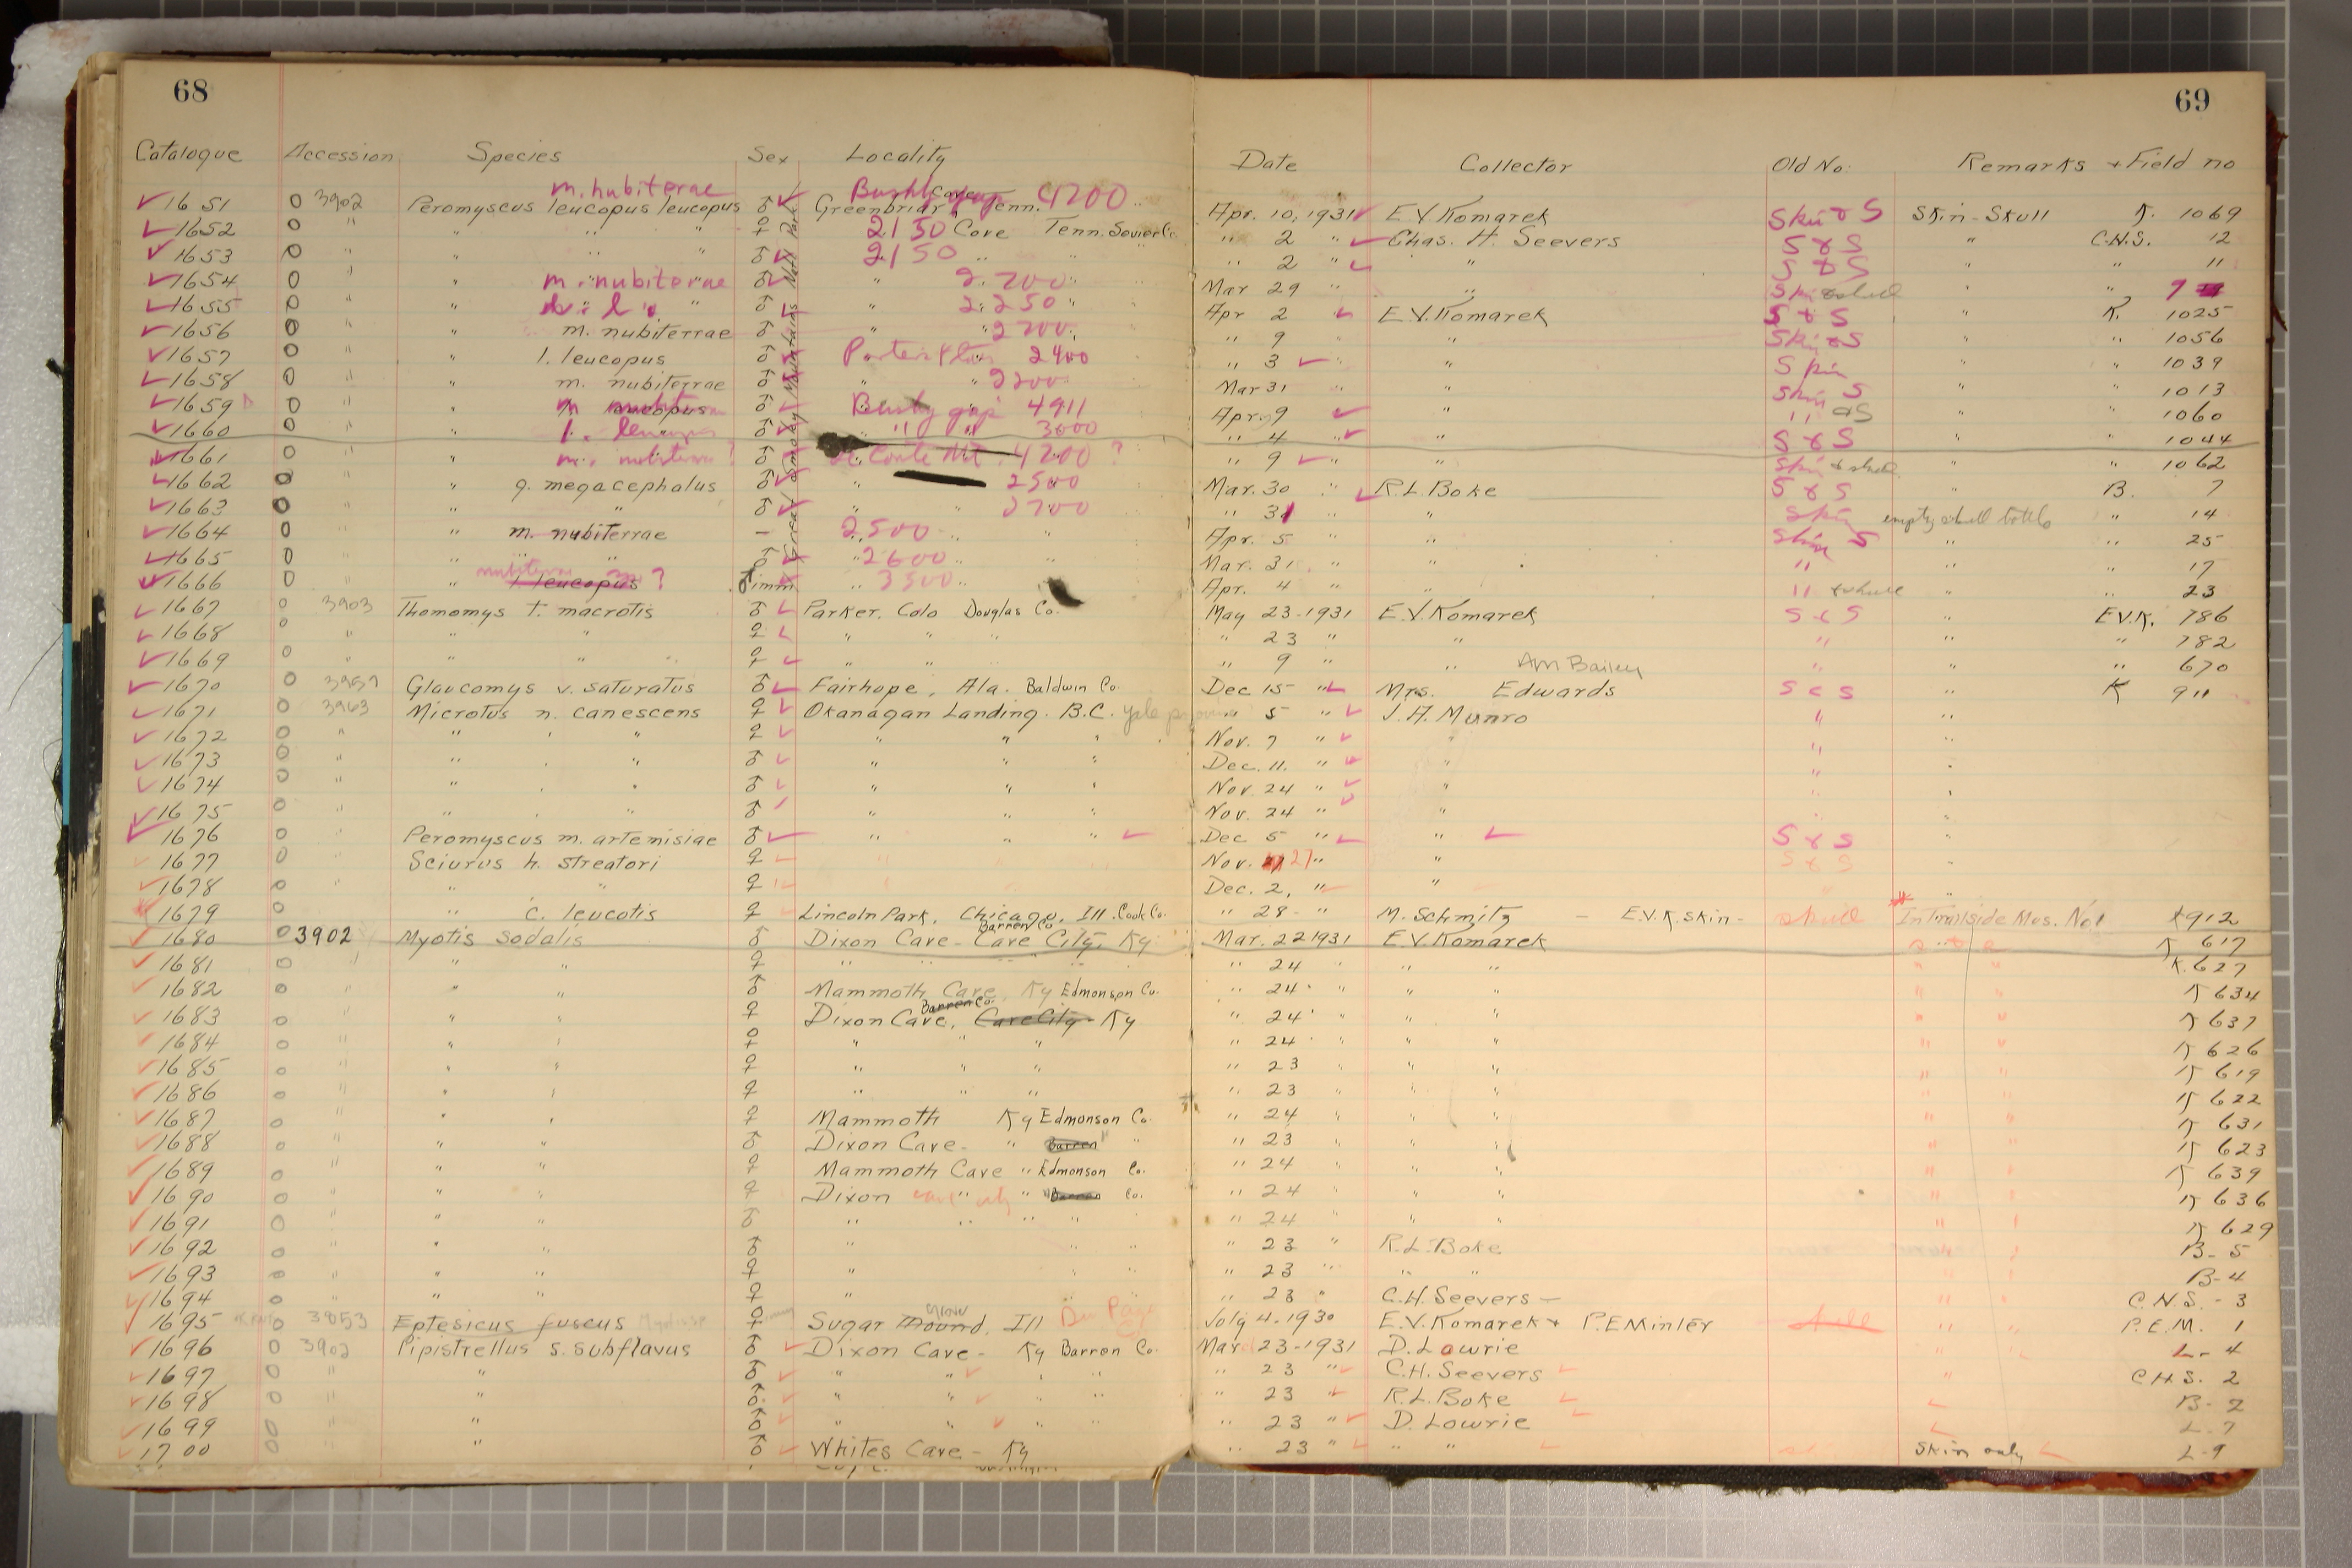 68
69
Catalogue Accession Species Sex Locality Date Collector Old No. Remarks + Field no
m. nubiterae Bushy gap 4200
1651 0 3902 Peromyscus leucopus leucopus ♂ Greenbriar Cove Tenn. Apr. 10, 1931 E.V. Komarek Skin & S Skin-Skull K. 1069
1652 0 " " " " ♀ 2150 Cove Tenn. Sevier Co. " 2 " Chas. H. Seevers S & S " C.H.S. 12
1653 0 " " " " ♂ 2150 " " 2 " " S & S " " 11
1654 0 " " m. nubiterae ♂ " 2700 " Mar 29 " " " 7
1655 0 " " l. l. ♂ " 2250 " Apr 2 " E.V. Komarek S & S " K. 1025
1656 0 " " m. nubiterrae ♂ " 2700 " " 9 " Skin & S " " 1056
1657 0 " " l. leucopus ♂ Porters Flat 2400 " 3 " Skin " " 1039
1658 0 " " m. nubiterrae ♂ " " 2200 Mar 31 " Skin S " " 1013
1659 0 " " ♂ Bushy gap 4911 Apr. 9 " " &S " " 1060
1660 0 " " l. leucopus ♂ " " 3000 " 4 " " S & S " " 1044
1661 0 " " ♂ Le Conte Mt. 4200 ? " 9 " Skin & skull " " 1062
1662 0 " " g. megacephalus ♂ " 2500 Mar. 30 " R.L. Boke S & S " B. 7
1663 0 " " " ♂ " " 2700 " 31 " " Skin empty skull bottle " 14
1664 0 " " m. nubiterrae – 2500 " " Apr. 5 " " Skin S " " 25
1665 0 " " " " ♂ " 2600 " " Mar. 31 " " " " " 17
1666 0 " " l leucopus ? ♂ imm " 3500 " Apr. 4 " " " & skull " " 23
Great Smoky Mountains Natl Park
1667 0 3903 Thomomys t. macrotis ♂ Parker. Colo Douglas Co. May 23-1931 E.V. Komarek S & S " E.V.K. 786
1668 0 " " " ♀ " " " " 23 " " " " " 782
1669 0 " " " " ♀ " " " " 9 " " AM Bailey " " " 670
1670 0 3957 Glaucomys v. saturatus ♂ Fairhope, Ala. Baldwin Co. Dec 15 " Mrs. Edwards S & S " K 911
1671 0 3963 Microtus n. canescens ♀ Okanagan Landing. B.C. Yale " 5 " J.A. Munro " "
1672 0 " " " " ♀ " " " Nov. 7 " " " "
1673 0 " " " " ♂ " " " Dec. 11. " " " "
1674 0 " " " " ♂ " " " Nov. 24 " " " "
1675 0 " " " " ♂ " " " Nov. 24 " " " "
1676 0 " Peromyscus m. artemisiae ♂ " " " Dec 5 " " S & S "
1677 0 " Sciurus h. streatori ♀ " " " Nov. 27 " " S & S "
1678 0 " " " ♀ " " " Dec. 2, " " " "
1679 0 " c. leucotis ♀ Lincoln Park, Chicago, Ill. Cook Co. " 28- " M. Schmitz – E.V.K. skin- skull In Trailside Mus. No1 K912
Barren Co
1680 0 3902 Myotis sodalis ♂ Dixon Cave – Cave City, Ky Mar. 22 1931 E.V. Komarek " " K 617
1681 0 " " " ♀ " " " " " 24 " " " " K. 627
1682 0 " " " ♂ Mammoth Cave, Ky Edmonson Co. " 24 " " " " " K 634
Barren Co.
1683 0 " " " ♀ Dixon Cave, Cave City- Ky " 24 " " " " " K 637
1684 0 " " " ♀ " " " " 24 " " " " " K 626
1685 0 " " " ♀ " " " " 23 " " " " " K 619
1686 0 " " " ♀ " " " " 23 " " " " " K 622
1687 0 " " " ♀ Mammoth Ky Edmonson Co. " 24 " " " " " K 631
1688 0 " " " ♂ Dixon Cave- " Barren " " 23 " " " " " K 623
1689 0 " " " ♀ Mammoth Cave " Edmonson Co. " 24 " " " " " K 639
1690 0 " " " ♀ Dixon cave " " Barren Co. " 24 " " " " " K 636
1691 0 " " " ♂ " " " " " 24 " " " " " K 629
1692 0 " " " ♂ " " " " 23 " R.L. Boke " " B- 5
1693 0 " " " ♀ " " " " 23 " " " " " B-4
1694 0 " " " ♀ " " " " 23 " C.H. Seevers – " " C.H.S. - 3
1695 0 3853 Eptesicus fuscus ♀ Sugar Mound Grove, Ill Du Page Co July 4-1930 E.V. Komarek + P.E. Minler skull " " P.E.M. 1
1696 0 3902 Pipistrellus s. subflavus ♂ Dixon Cave – Ky Barren Co. Mar 23-1931 D. Lowrie " " L- 4
1697 0 " " ♂ " " " " " 23 " C.H. Seevers " C.H.S. 2
1698 0 " " ♂ " " " " " 23 " R.L. Boke B- 2
1699 0 " " ♂ " " " " " 23 " D. Lowrie L-7
1700 0 " " ♂ Whites Cave – Ky " 23 " " " Skin only L-9